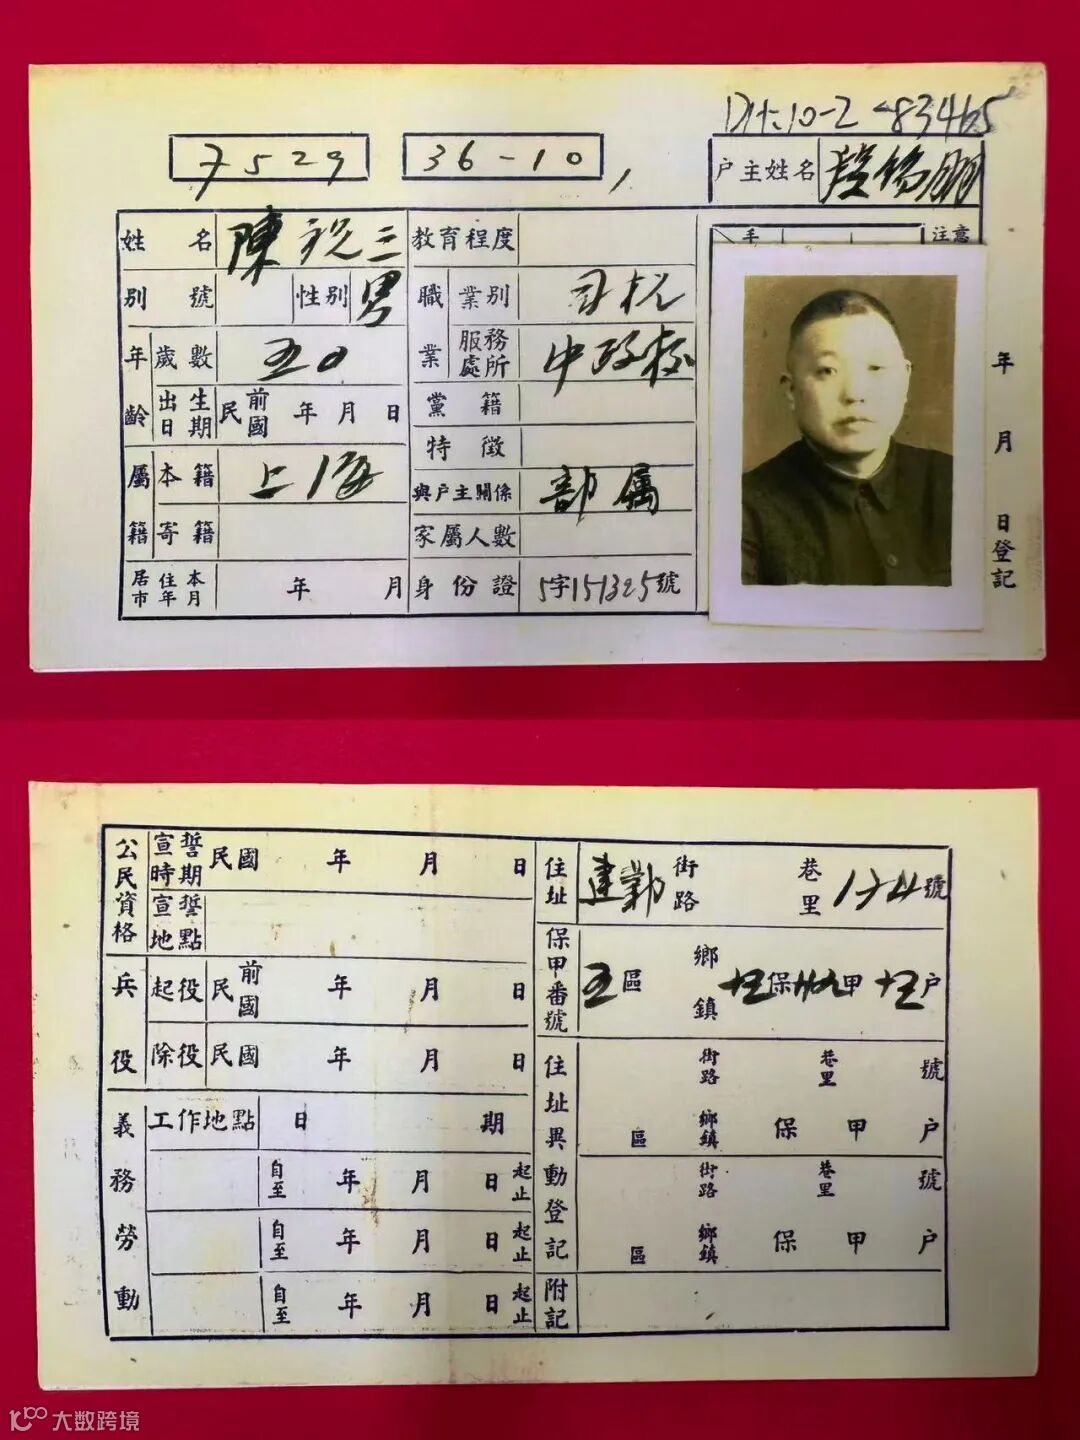 7529 36-10
户主姓名
姓名 陳祝三 教育程度 手 注意
別號 性別 男 職業 業別 司机
年齡 歲數 五〇 服務處所 中政校
出生日期 民國前 年 月 日 黨籍
特徵
屬籍 本籍 上海 與户主關係 部屬
寄籍 家屬人數
居住本市年月 年 月 身份證 5字151325號
年 月 日登記
公民資格 宣誓時期 民國 年 月 日 住址 建鄴 街路 巷里 174號
宣誓地點
兵役 起役 民國前 年 月 日 保甲番號 五區 鄉鎮 保 甲 户
除役 民國 年 月 日 住址異動登記 街路 巷里 號
義務勞動 工作地點 日期 區 鄉鎮 保 甲 户
自至 年 月 日 起止 街路 巷里 號
自至 年 月 日 起止 區 鄉鎮 保 甲 户
自至 年 月 日 起止 附記
大数跨境